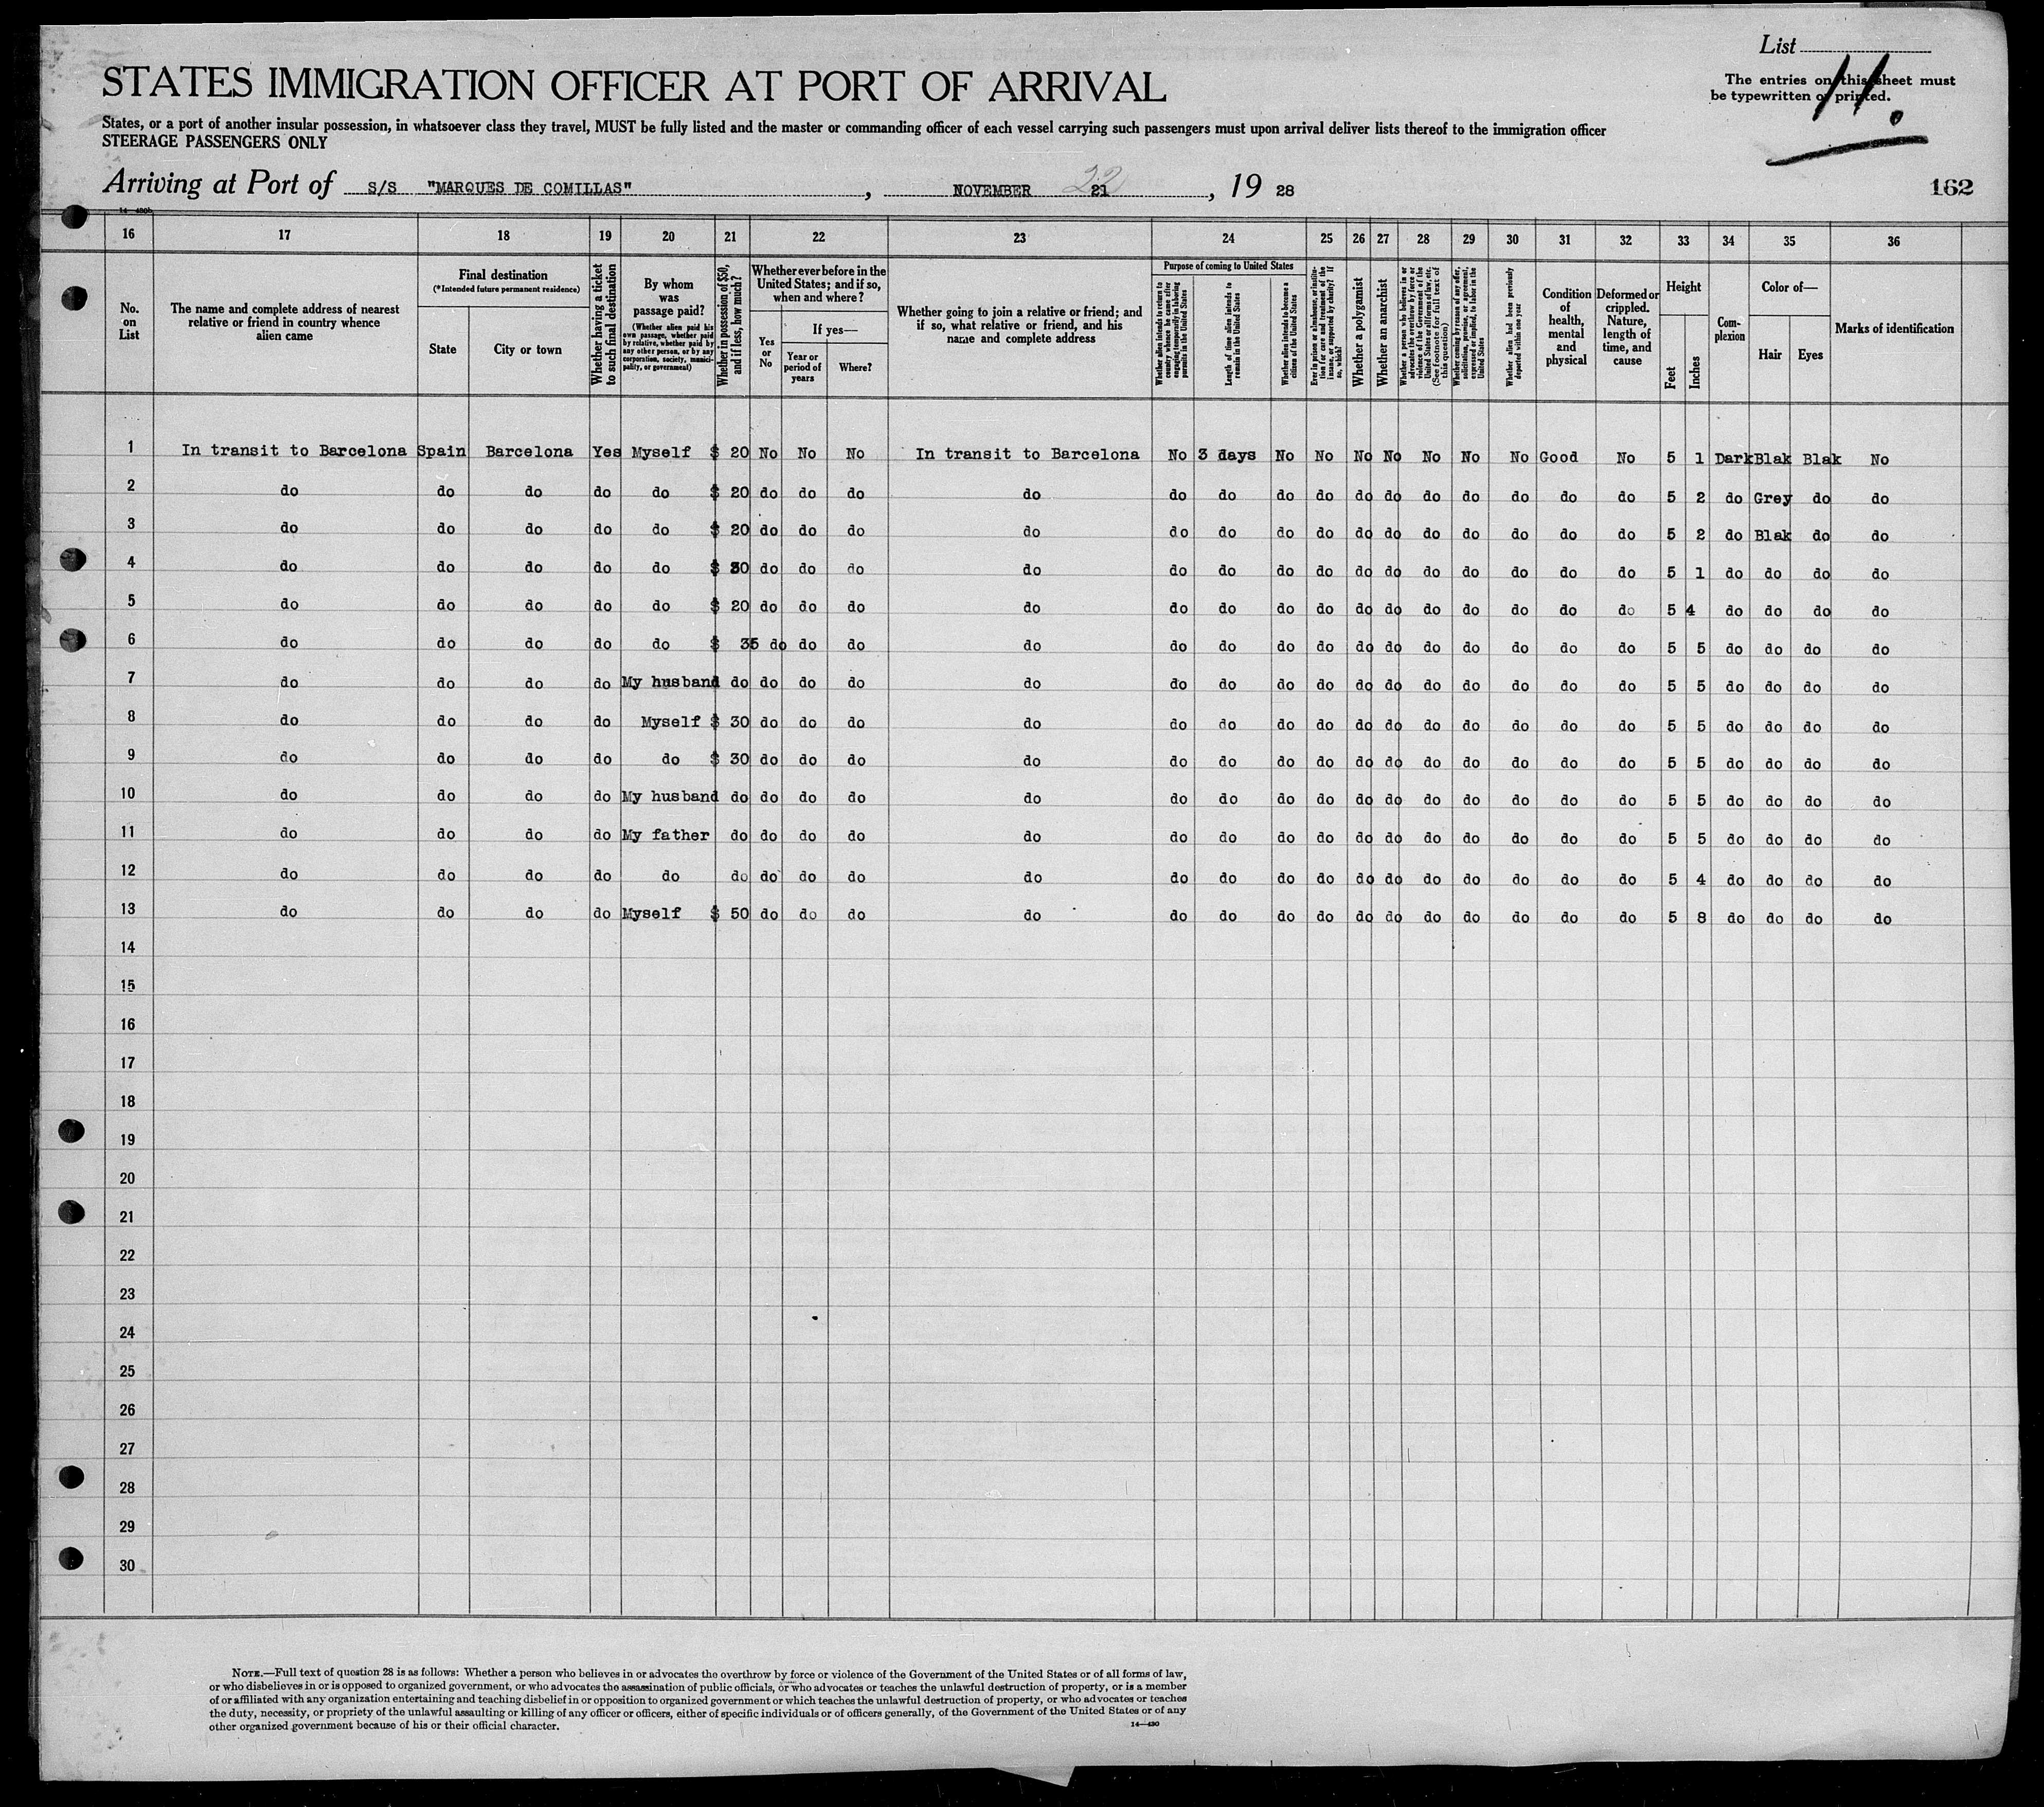 List
The entries on this sheet must
be typewritten or printed.
11.
STATES IMMIGRATION OFFICER AT PORT OF ARRIVAL
States, or a port of another insular possession, in whatsoever class they travel, MUST be fully listed and the master or commanding officer of each vessel carrying such passengers must upon arrival deliver lists thereof to the immigration officer
STEERAGE PASSENGERS ONLY
Arriving at Port of S/S "MARQUES DE COMILLAS", NOVEMBER 21 22, 19 28
162
16 17 18 19 20 21 22 23 24 25 26 27 28 29 30 31 32 33 34 35 36
No. on List
The name and complete address of nearest relative or friend in country whence alien came
Final destination (*Intended future permanent residence)
State
City or town
Whether having a ticket to such final destination
By whom was passage paid? (Whether alien paid his own passage, whether paid by relative, whether paid by any other person, or by any corporation, society, municipality, or government)
Whether in possession of $50, and if less, how much?
Whether ever before in the United States; and if so, when and where?
Yes or No
If yes—
Year or period of years
Where?
Whether going to join a relative or friend; and if so, what relative or friend, and his name and complete address
Purpose of coming to United States
Whether alien intends to return to country whence he came after engaging temporarily in laboring pursuits in the United States
Length of time alien intends to remain in the United States
Whether alien intends to become a citizen of the United States
Ever in prison or almshouse, or institution for care and treatment of the insane, or supported by charity? If so, which?
Whether a polygamist
Whether an anarchist
Whether a person who believes in or advocates the overthrow by force or violence of the Government of the United States or all forms of law, etc. (See footnote for full text of this question)
Whether coming by reason of any offer, solicitation, promise, or agreement, expressed or implied, to labor in the United States
Whether alien had been previously deported within one year
Condition of health, mental and physical
Deformed or crippled. Nature, length of time, and cause
Height
Feet
Inches
Com-plexion
Color of—
Hair
Eyes
Marks of identification
1 In transit to Barcelona Spain Barcelona Yes Myself $ 20 No No No In transit to Barcelona No 3 days No No No No No No No Good No 5 1 Dark Blak Blak No
2 do do do do do $ 20 do do do do do do do do do do do do do do do 5 2 do Grey do do
3 do do do do do $ 20 do do do do do do do do do do do do do do do 5 2 do Blak do do
4 do do do do do $ 30 do do do do do do do do do do do do do do do 5 1 do do do do
5 do do do do do $ 20 do do do do do do do do do do do do do do do 5 4 do do do do
6 do do do do do $ 35 do do do do do do do do do do do do do do do 5 5 do do do do
7 do do do do My husband do do do do do do do do do do do do do do do do 5 5 do do do do
8 do do do do Myself $ 30 do do do do do do do do do do do do do do do 5 5 do do do do
9 do do do do do $ 30 do do do do do do do do do do do do do do do 5 5 do do do do
10 do do do do My husband do do do do do do do do do do do do do do do do 5 5 do do do do
11 do do do do My father do do do do do do do do do do do do do do do do 5 5 do do do do
12 do do do do do do do do do do do do do do do do do do do do do 5 4 do do do do
13 do do do do Myself $ 50 do do do do do do do do do do do do do do do 5 8 do do do do
14
15
16
17
18
19
20
21
22
23
24
25
26
27
28
29
30
NOTE.—Full text of question 28 is as follows: Whether a person who believes in or advocates the overthrow by force or violence of the Government of the United States or of all forms of law,
or who disbelieves in or is opposed to organized government, or who advocates the assassination of public officials, or who advocates or teaches the unlawful destruction of property, or is a member
of or affiliated with any organization entertaining and teaching disbelief in or opposition to organized government or which teaches the unlawful destruction of property, or who advocates or teaches
the duty, necessity, or propriety of the unlawful assaulting or killing of any officer or officers, either of specific individuals or of officers generally, of the Government of the United States or of any
other organized government because of his or their official character.
14—430